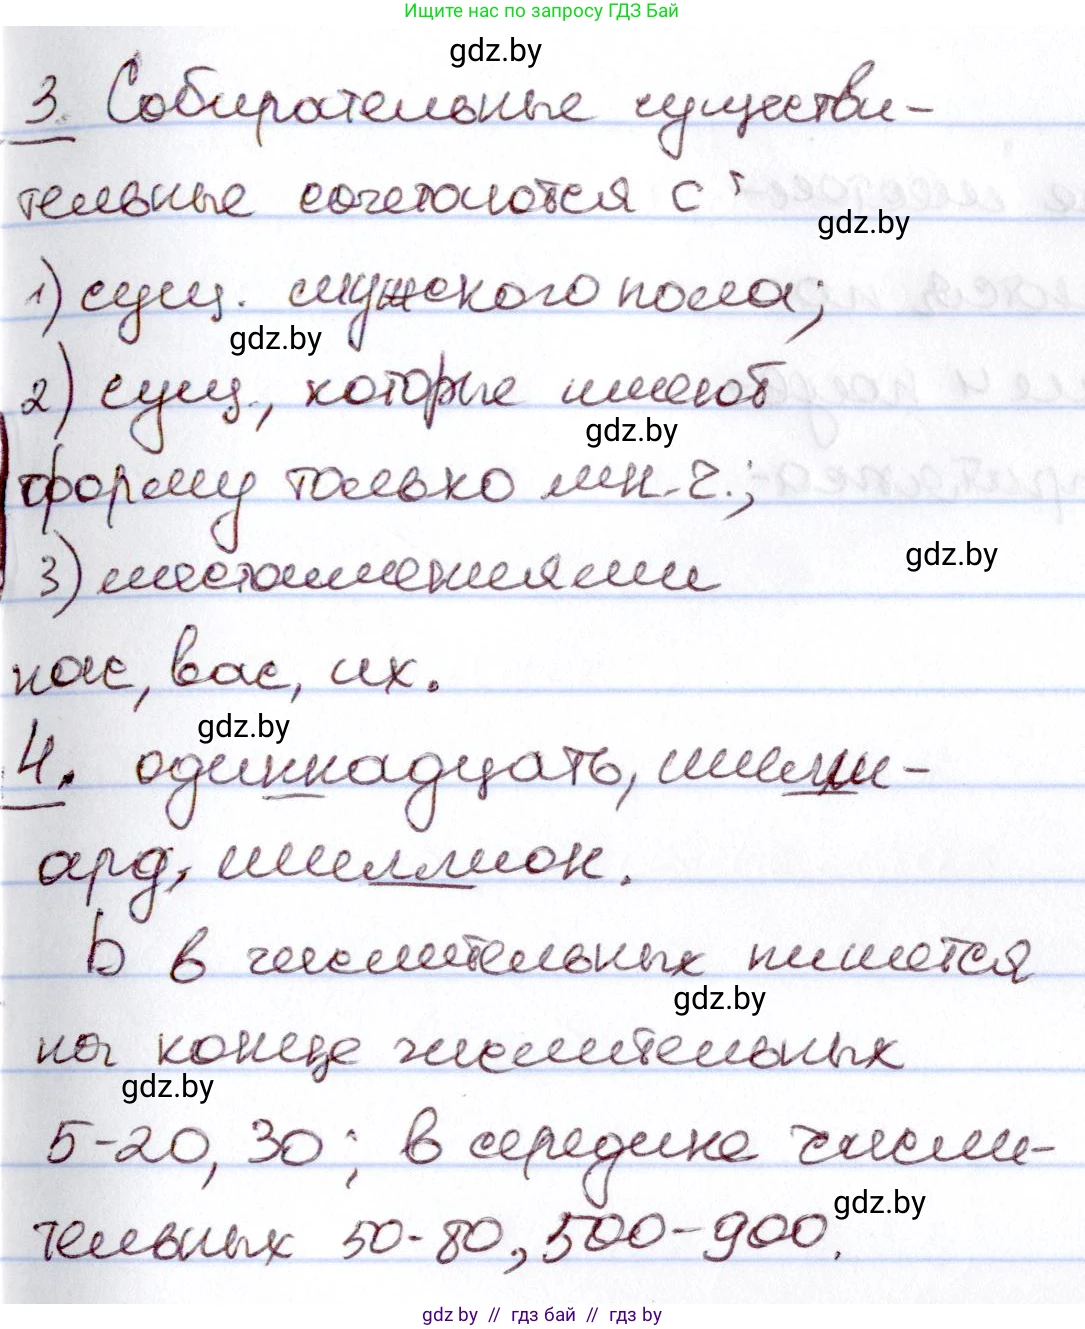 Ищите нас по запросу ГДЗ Бай
gdz.by
3. Собирательные существи-
тельные сочетаются с
gdz.by
1) сущ. мужского пола;
gdz.by
2) сущ., которые имеют
gdz.by
форму только мн.ч.;
gdz.by
3) местоимениями
нас, вас, их.
gdz.by
4. одиннадцать, милли-
ард, миллион.
Ь в числительных пишется
gdz.by
на конце числительных
gdz.by
5-20, 30; в середине числи-
gdz.by
тельных 50-80, 500-900.
gdz by // гдз бай // гдз by